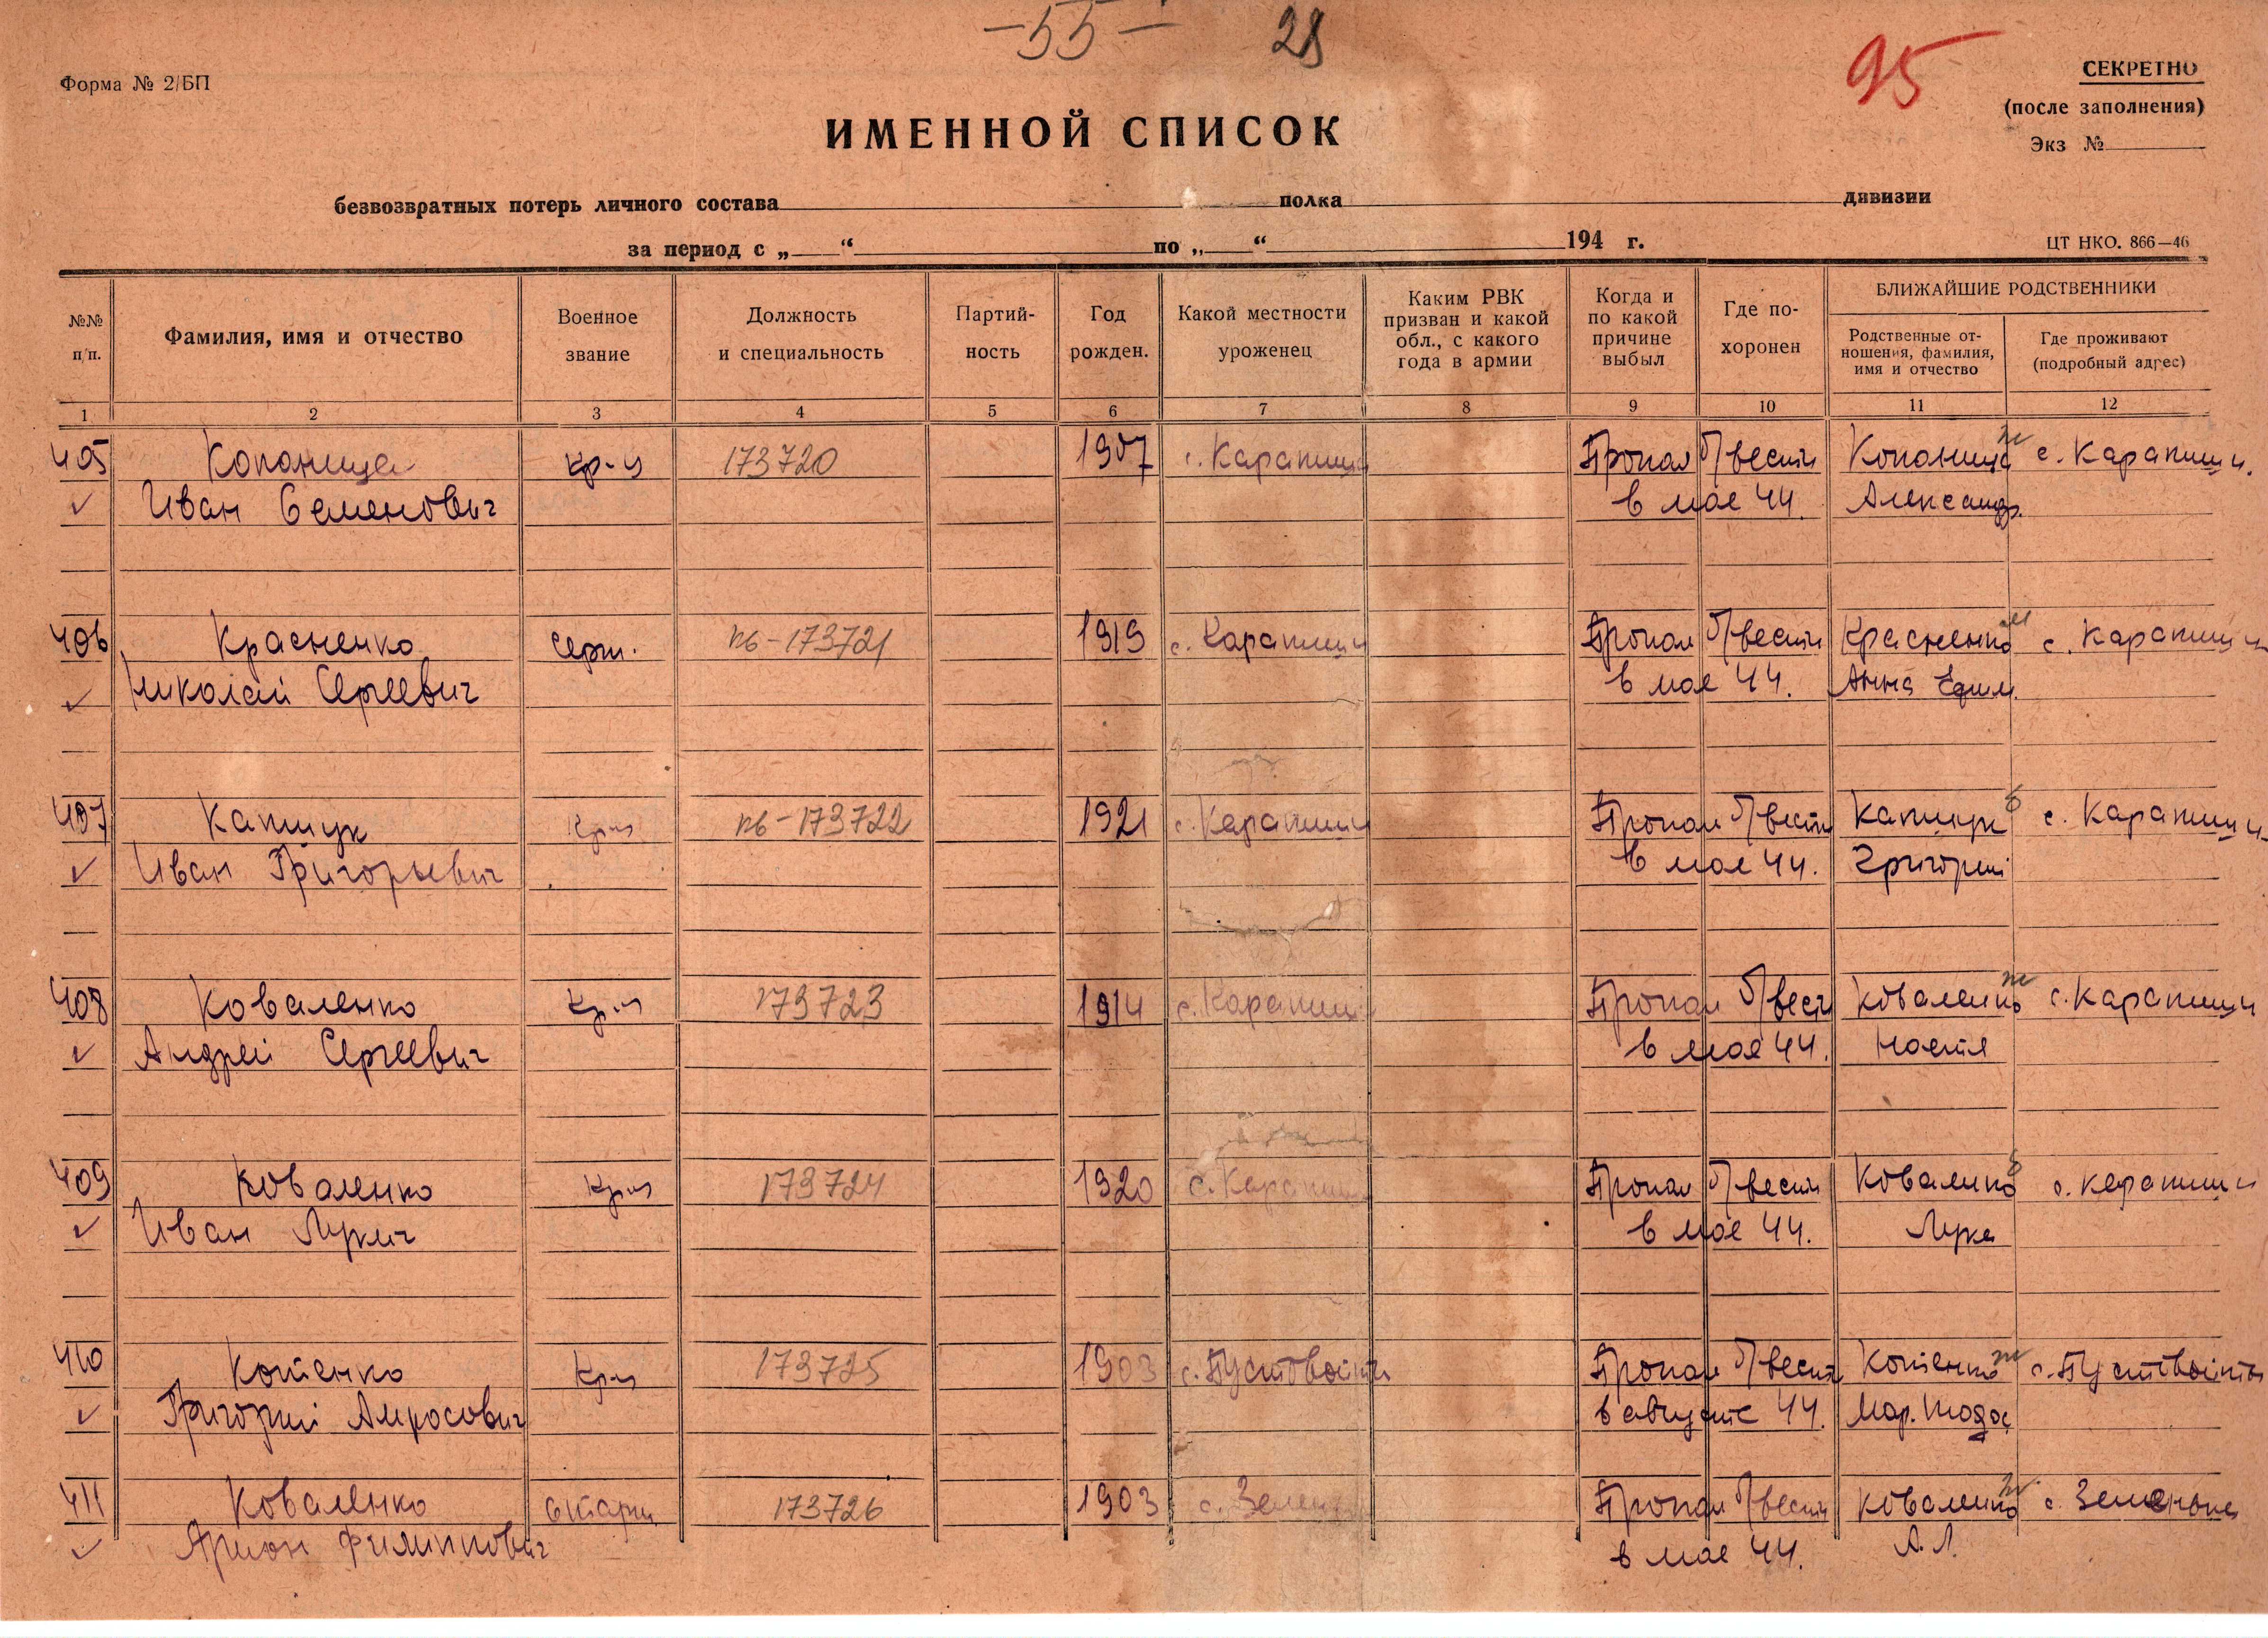 -55- 28
95
Форма № 2/БП
СЕКРЕТНО
(после заполнения)
Экз №
ИМЕННОЙ СПИСОК
безвозвратных потерь личного состава полка дивизии
за период с „ “ по „ “ 194 г.
ЦТ НКО. 866—46
№№ п/п.
Фамилия, имя и отчество
Военное звание
Должность и специальность
Партий-ность
Год рожден.
Какой местности уроженец
Каким РВК призван и какой обл., с какого года в армии
Когда и по какой причине выбыл
Где по-хоронен
БЛИЖАЙШИЕ РОДСТВЕННИКИ
Родственные от-ношения, фамилия, имя и отчество
Где проживают (подробный адрес)
1 2 3 4 5 6 7 8 9 10 11 12
405 Копаница кр-ц 173720 1907 с. Карапиши Пропал б/вести Копаница ж с. Карапиши.
✓ Иван Семенович в мае 44. Александр.
406 Красненко Серж. пв-173721 1919 с. Карапиши Пропал б/вести Красненко м с. Карапиши
✓ Николай Сергеевич в мае 44. Анна Ефим.
407 Капшук Кр-ц пв-173722 1921 с. Карапиши Пропал б/вести Капшук о с. Карапиши
✓ Иван Григорьевич в мае 44. Григорий
408 Коваленко Кр-ц 173723 1914 с. Карапиши Пропал б/вести Коваленко ж с. Карапиши
✓ Андрей Сергеевич в мае 44. Настя
409 Коваленко Кр-ц 173724 1920 с. Карапиши Пропал б/вести Коваленко о с. Карапиши
✓ Иван Лукич в мае 44. Лука
410 Котенко Кр-ц 173725 1903 с. Пустовойты Пропал б/вести Котенко ж с. Пустовойты
✓ Григорий Амросович в августе 44. Мар. Тодос
411 Коваленко 173726 1903 с. Зелень Пропал б/вести Коваленко ж с.
✓ Филиппович в мае 44. А.Л.